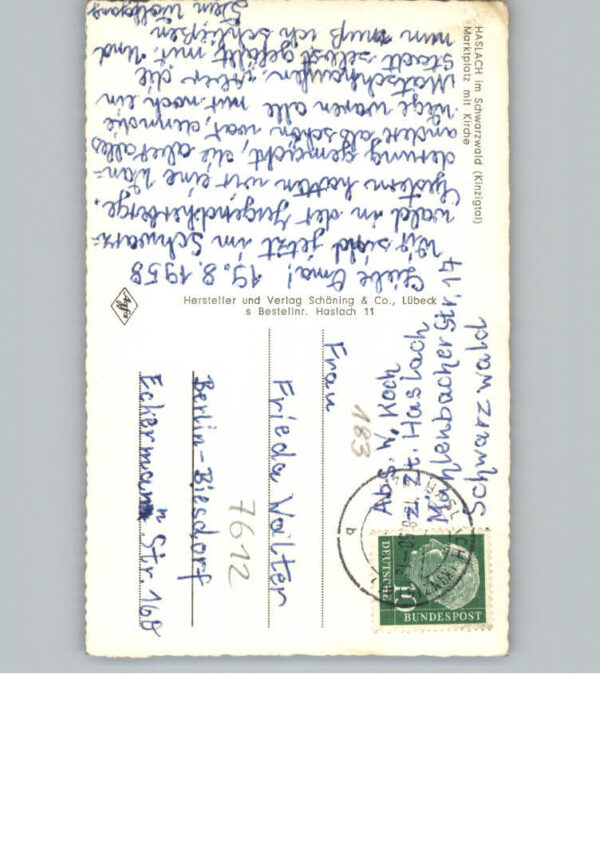 HASLACH im Schwarzwald (Kinzigtal)
Marktplatz mit Kirche
Liebe Oma! 19.8.1958
Wir sind jetzt im Schwarz=
wald in der Jugendherberge.
Gestern hatten wir eine Wan-
derung gemacht, die aber alles
andere als schön war, denn die
Wege waren alle mit noch ein
Matschhaufen. Aber die
Stadt selbst gefällt mir. Und
nun muß ich schließen
Dein Wolfgang
Hersteller und Verlag Schöning & Co., Lübeck
s Bestellnr. Haslach 11
Abs. W. Koch
z. Zt. Haslach
Mühlenbacher Str. 17
Schwarzwald
DEUTSCHE
BUNDESPOST
10
b
183
Frau
Frieda Walter
7612
Berlin-Biesdorf
Eckermann Str. 160